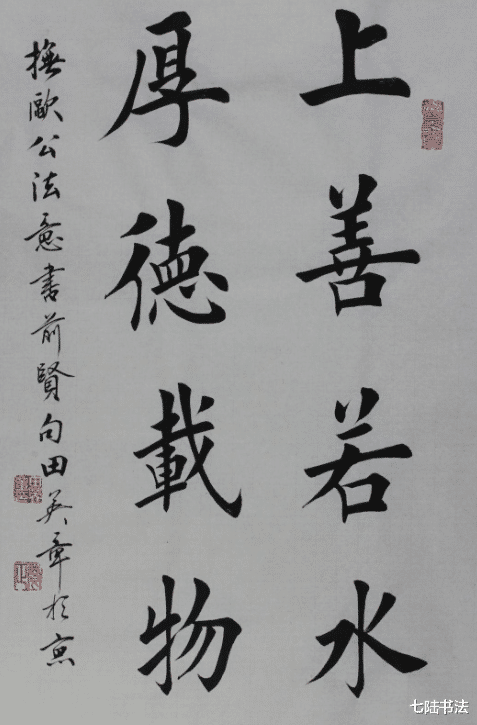 上善若水
厚德載物
撫歐公法意書前賢句田英章於京
七陆书法